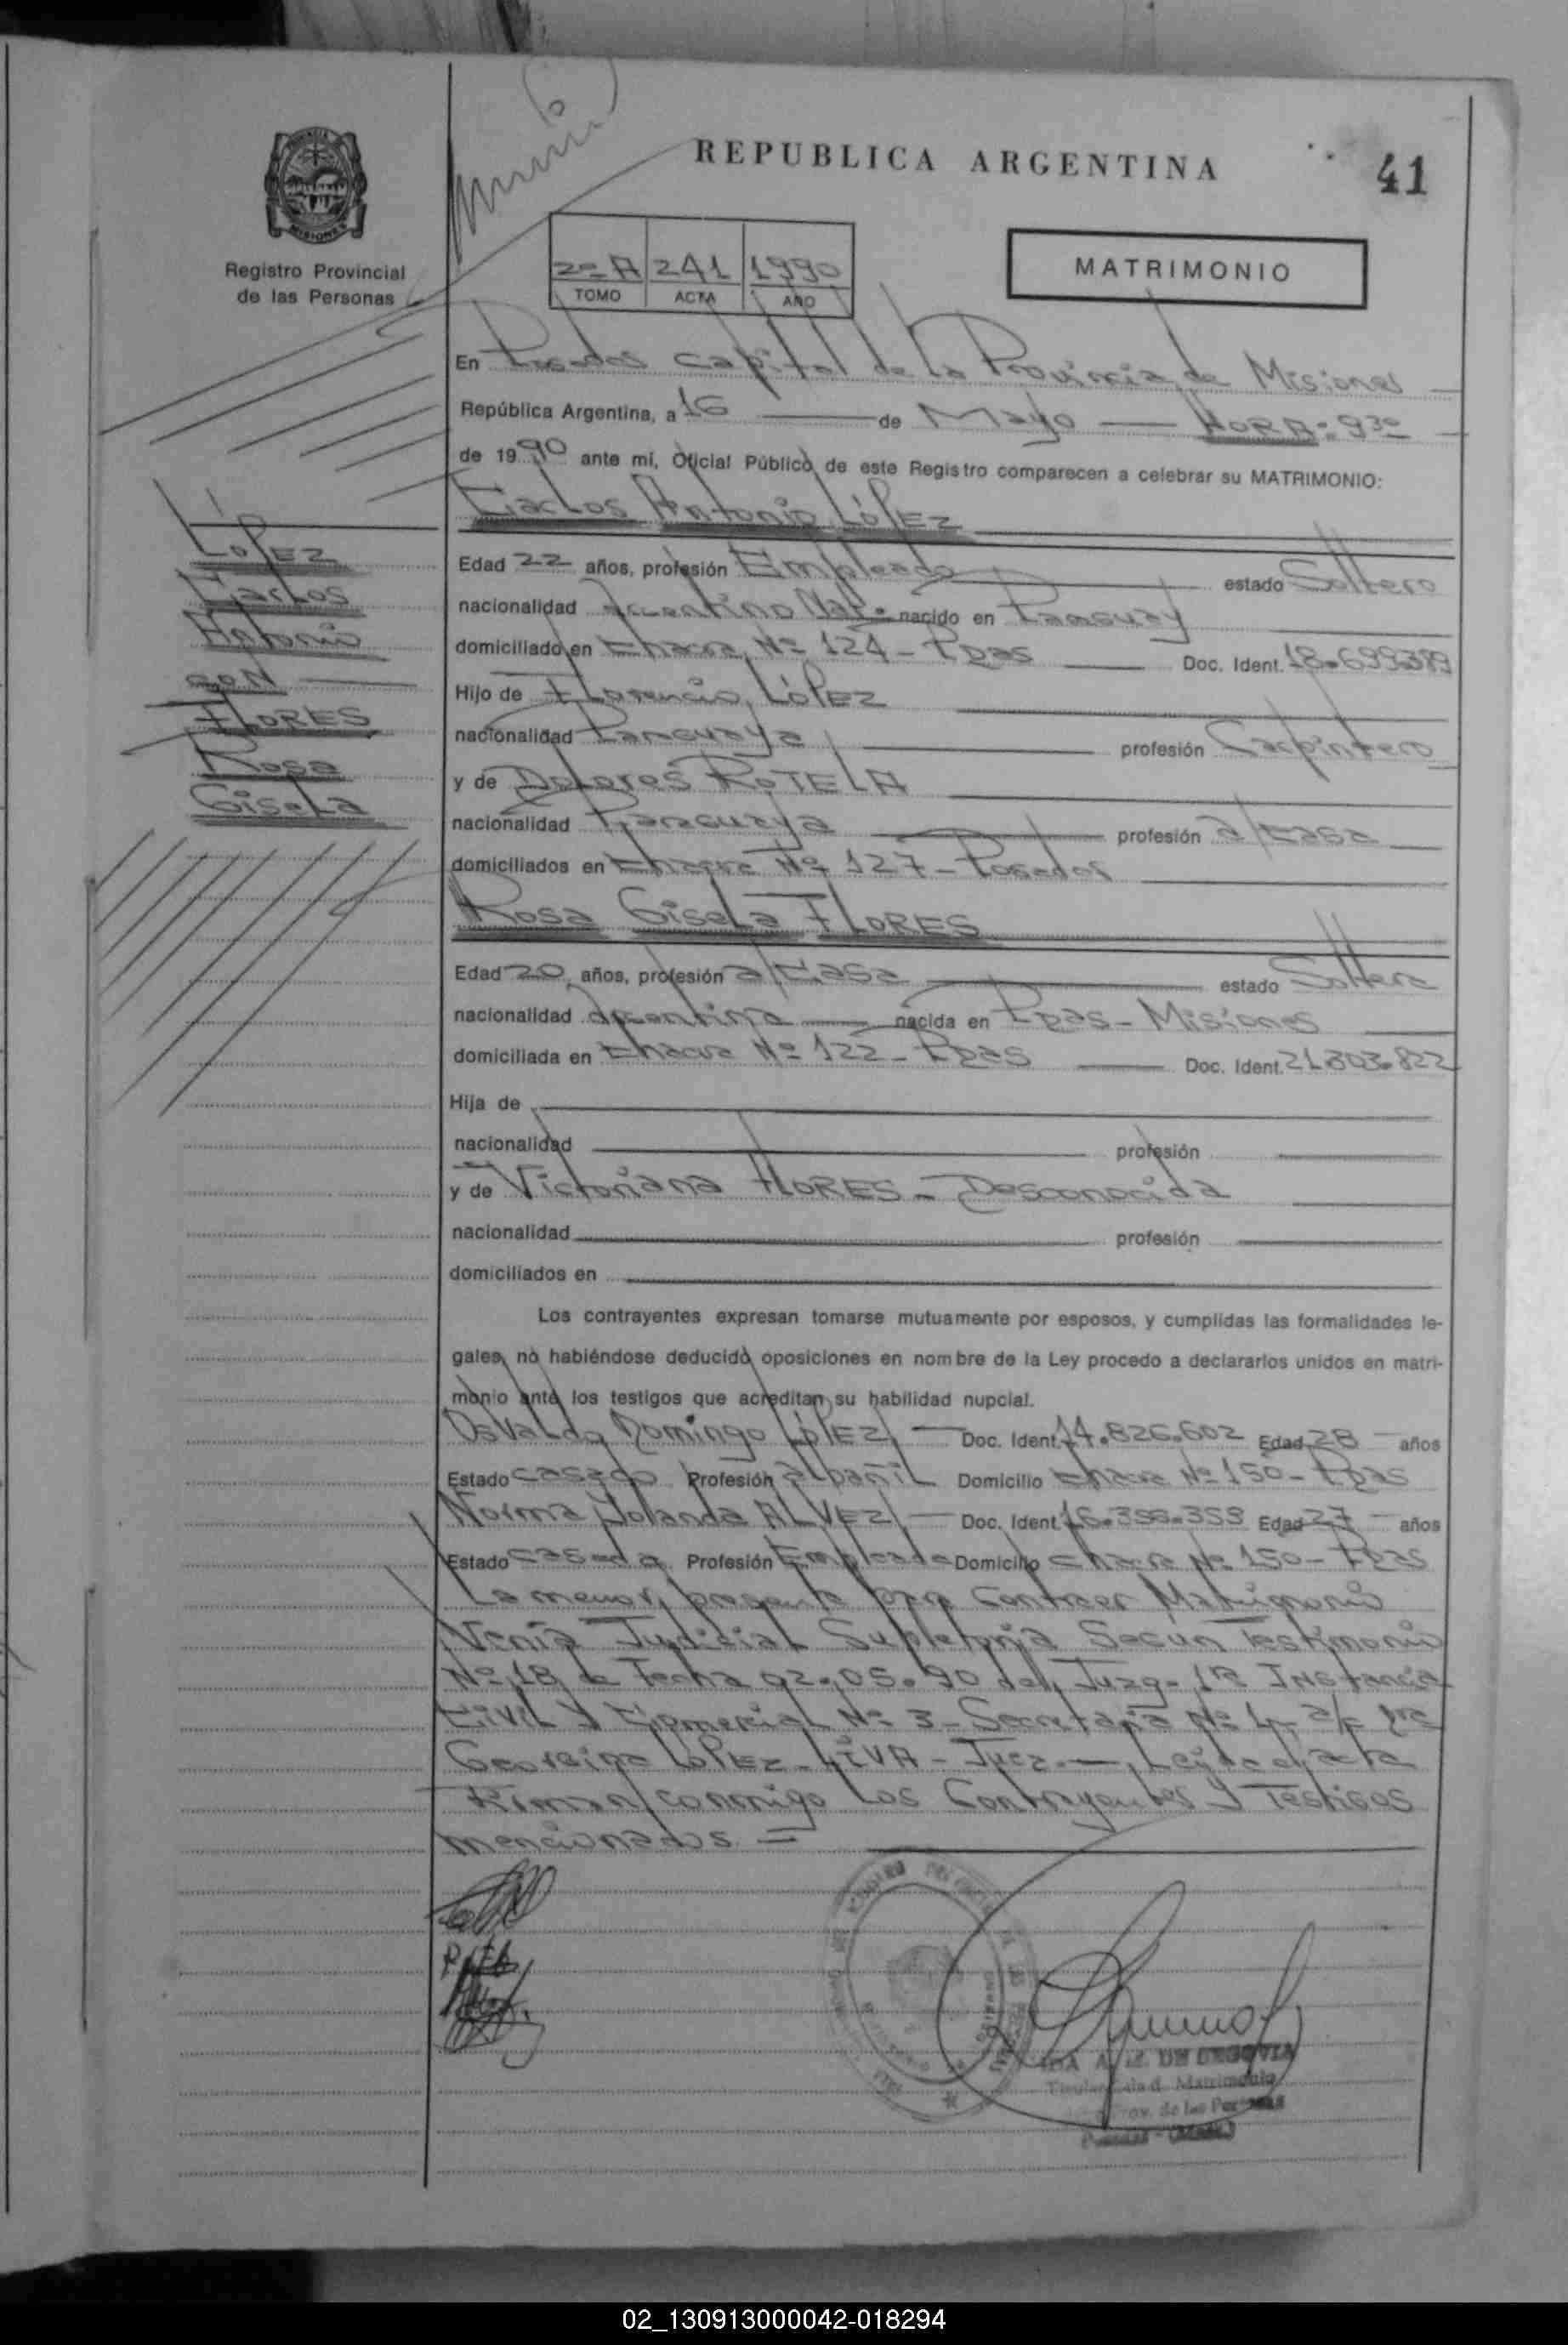 REPUBLICA ARGENTINA
41
MISIONES
Registro Provincial
de las Personas
2º A 241 1990
TOMO ACTA AÑO
MATRIMONIO
En Posadas Capital de la Provincia de Misiones
República Argentina, a 16 de Mayo HORA: 9 30
de 1990 ante mi, Oficial Público de este Registro comparecen a celebrar su MATRIMONIO:
Carlos Antonio LóPEZ
LóPEZ
Carlos
Antonio
CON
FLORES
Rosa
Gisela
Edad 22 años, profesión Empleado estado Soltero
nacionalidad Argentino Nat. nacido en Paraguay
domiciliado en Chacra Nº 124 - Pdas Doc. Ident. 18.699.389
Hijo de Florencio LóPEZ
nacionalidad Paraguaya profesión Carpintero
y de Dolores ROTELA
nacionalidad Paraguaya profesión a/casa
domiciliados en Chacra Nº 127 - Posadas
Rosa Gisela FLORES
Edad 20 años, profesión a/Casa estado Soltera
nacionalidad Argentina nacida en Pdas - Misiones
domiciliada en Chacra Nº 122 - Pdas Doc. Ident. 21.303.822
Hija de
nacionalidad profesión
y de Victoriana FLORES - Desconocida
nacionalidad profesión
domiciliados en
Los contrayentes expresan tomarse mutuamente por esposos, y cumplidas las formalidades le-
gales, no habiéndose deducido oposiciones en nombre de la Ley procedo a declararlos unidos en matri-
monio ante los testigos que acreditan su habilidad nupcial.
Osvaldo Domingo LóPEZ Doc. Ident. 14.826.602 Edad 28 años
Estado casado Profesión albañil Domicilio Chacra Nº 150 - Pdas
Norma Yolanda ALVEZ Doc. Ident. 16.358.359 Edad 27 años
Estado casada Profesión Empleada Domicilio Chacra Nº 150 - Pdas
La menor, presenta para Contraer Matrimonio
Venia Judicial Supletoria Segun Testimonio
Nº 18 de Fecha 02.05.90 del Juzg. 1ra Instancia
Civil y Comercial Nº 3 - Secretaria Nº a/c Dra
Georgina LóPEZ - LIVA - Juez. - Leida el acta
Firman conmigo Los Contrayentes y Testigos
mencionados =
DE SEGOVIA
Matrimonio
Prov. de las Personas
Posadas - (Mnes.)
02_130913000042-018294